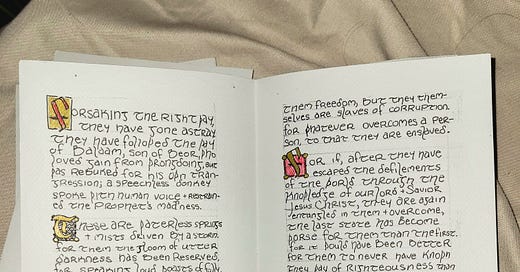 Forsaking the right way,
they have gone astray.
they have followed the way
of Balaam, son of Beor, who
loved gain from wrongdoing, but
was rebuked for his own tran-
gression; a speechless donkey
spoke with human voice + restran-
ed the prophet's madness.
These are waterless springs
+ mists driven by a storm.
for them the gloom of utter
darkness has been reserved.
for, speaking loud boasts of folly,
them freedom, but they them-
selves are slaves of corruption
for whatever overcomes a per-
son, to that they are enslaved.
For if, after they have
escaped the defilements
of the world through the
knowledge of our lord + Savior
Jesus Christ, they are again
entangled in them + overcome,
the last state has become
worse for them than the first.
for it would have been better
for them to never have known
they way of righteousness than